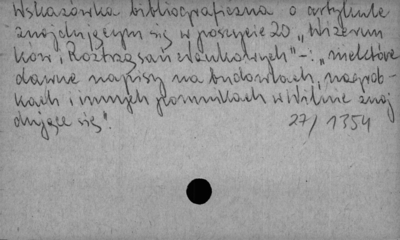 Wskazówka bibliograficzna o artykule
znajdującym się w poszycie 20 „Wizerun
ków i Roztrząsań Naukowych" -: „niektóre
dawne napisy na budowlach, nagrob-
kach i innych pomnikach w Wilnie znaj
dujące się".
27/1354